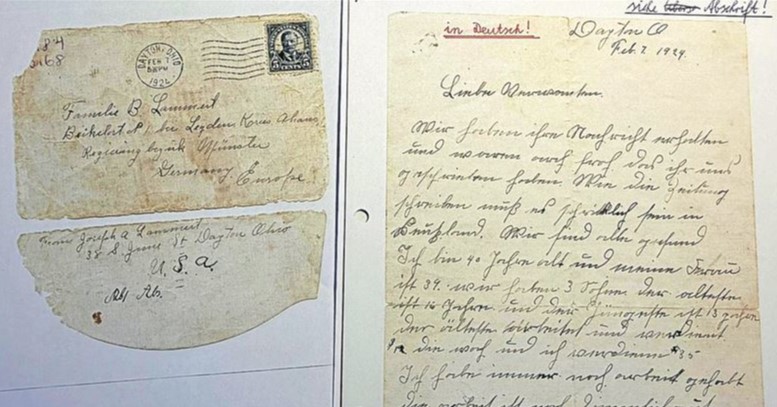 siehe Abschrift!
in Deutsch!
DAYTON, OHIO
FEB 7
1924
5 CENTS 5
Familie B. Lammert
bei Legden Kreis Ahaus,
Regierung bezirk Münster
Germany, Europe
From Joseph A Lammert
38 S. June St Dayton Ohio
U. S. A.
Abs.
Dayton O
Feb. 7. 1924.
Liebe Verwandten.
Wir haben ihre Nachricht erhalten
und waren auch froh das ihr uns
geschrieben haben Wie die Zeitung
schreiben muß es schrecklich sein in
Wir sind alle gesund
Ich bin 40 Jahre alt und meine Frau
ist 39. wir haben 3 Sohne der älteste
ist 16 Jahre und der Jüngeste ist 13 Jahre
der älteste arbeitet und verdient
die woch und ich verdiene $35
Ich habe immer noch arbeit gehabt
die arbeit ist noch